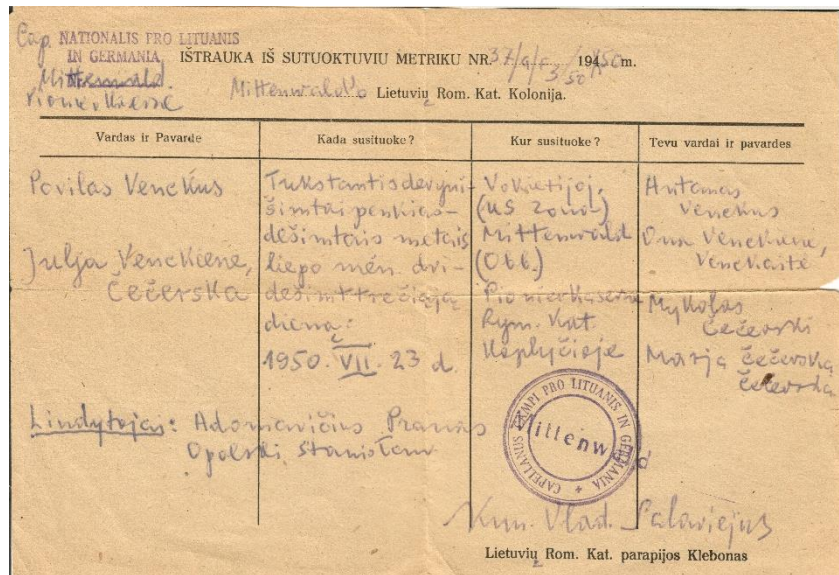 Cap. NATIONALIS PRO LITUANIS
IN GERMANIA
Mittenwald.
Pionierkaserne
IŠTRAUKA IŠ SUTUOKTUVIU METRIKU NR. 1950 m.
Mittenwald'o Lietuvių Rom. Kat. Kolonija.
Vardas ir Pavarde
Kada susituoke?
Kur susituoke?
Tevu vardai ir pavardes
Povilas Venckus
Julja Venckienė,
Čečerska
Tukstantis devyni-
šimtai penkias-
dešimtais metais
liepo mėn. dvi-
dešimt trečiąją
diena:
1950. VII. 23 d.
Vokietijoj,
(US Zona-)
Mittenwald
(Obb.)
Pionierkaserne
Rym. Kat.
Koplyčioje
Antanas
Venckus
Ona Venckienė,
Venckaitė
Mykolas
Čečerski
Marja Čečerska
Čečerska
Liudytojai: Adomavičius Pranas
Opolski
CAPELLANUS CAMPI PRO LITUANIS IN GERMANIA
Mittenwald
Kun. Vlad. Salaviejus
Lietuvių Rom. Kat. parapijos Klebonas